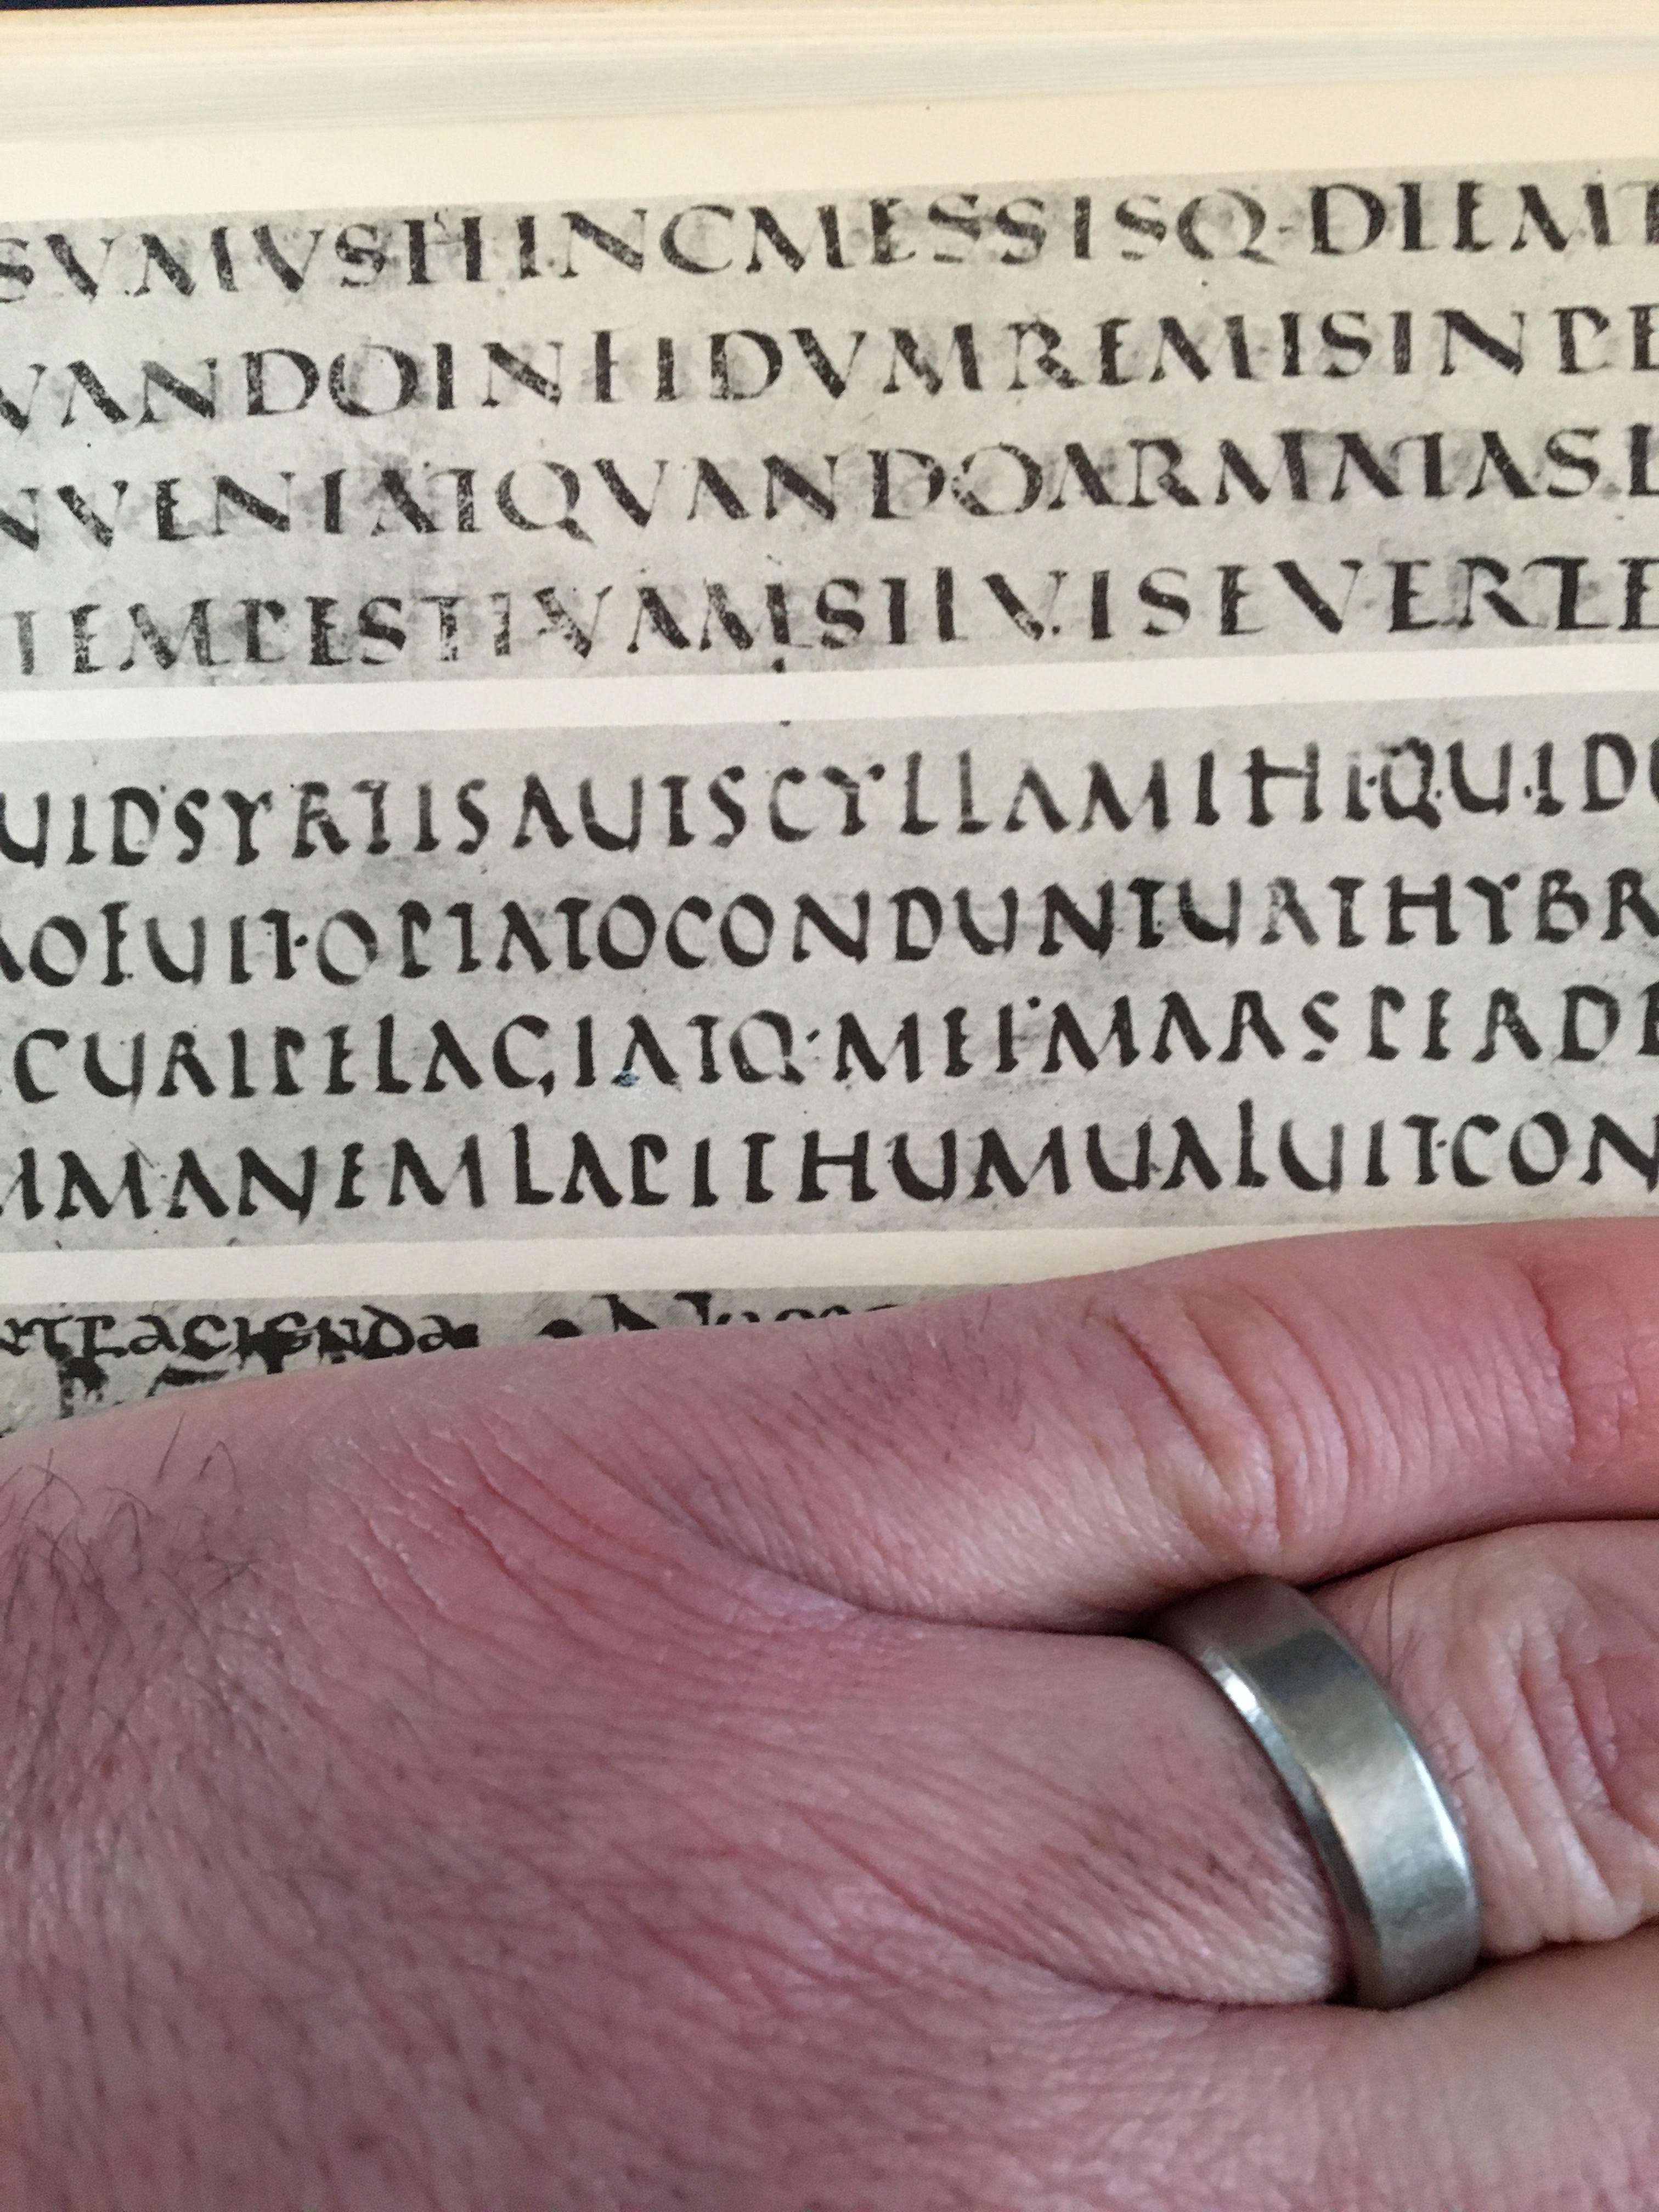 SVMVSHINCMESSISQ·DIEMT
VANDOINFIDVMREMISINPE
NVENIATQVANDOARMATAS
TEMPESTIVAMSILVISEVERTE
UIDSYRTISAUTSCYLLAMIHI·QUID
OFUIT·OPTATOCONDUNTURTHYBR
CURIPELAGIATQ·MEI·MARSPERDE
MMANEMLAPITHUMUALUIT·CON
FACIENDA